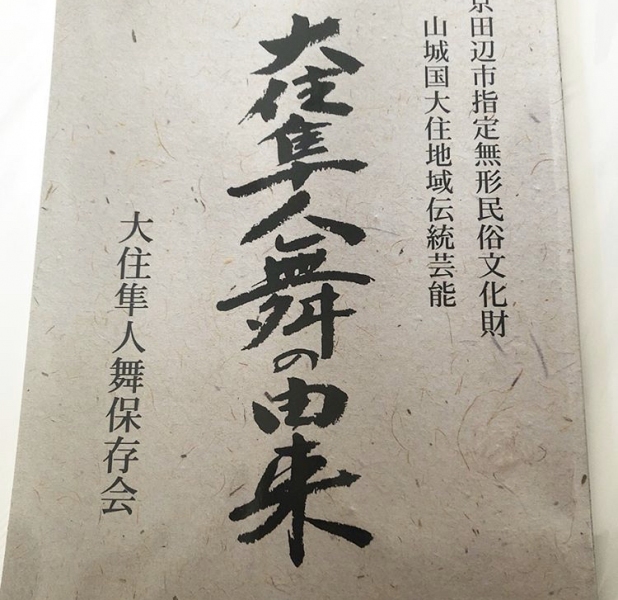 京田辺市指定無形民俗文化財
山城国大住地域伝統芸能
大住隼人舞の由来
大住隼人舞保存会